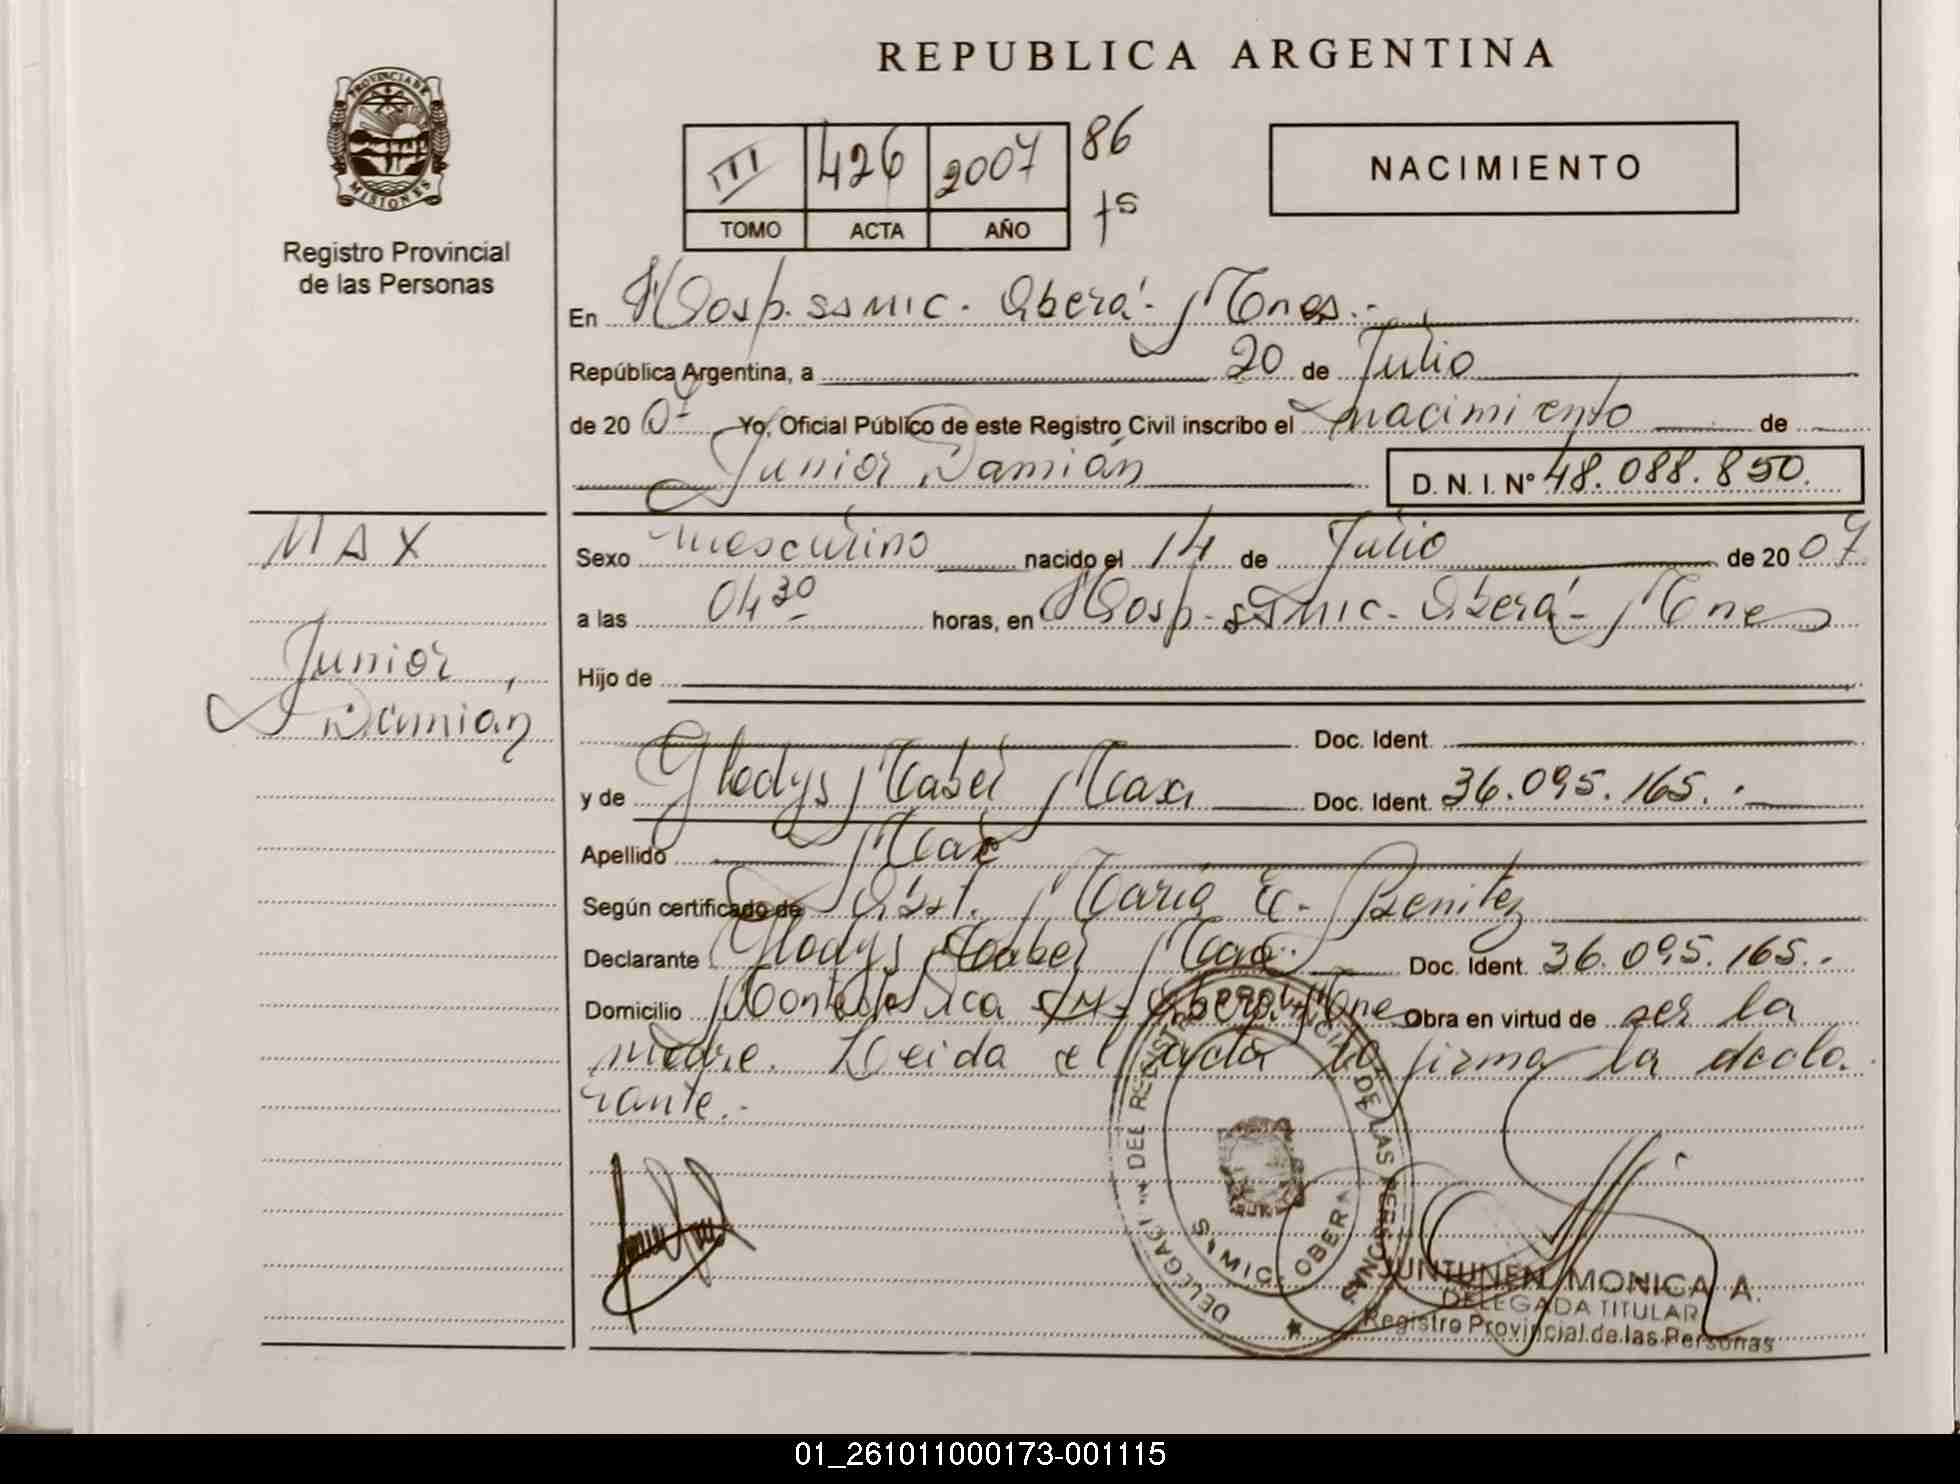 REPUBLICA ARGENTINA
PROVINCIA DE MISIONES
Registro Provincial
de las Personas
III 426 2007 86
TOMO ACTA AÑO fs
NACIMIENTO
En Hosp. SSMIC. Oberá - Mnes.-
República Argentina, a 20 de Julio
de 2007 Yo, Oficial Público de este Registro Civil inscribo el nacimiento de
Junior Damián D. N. I. N° 48.088.850.
MAX
Junior
Damián
Sexo masculino nacido el 14 de Julio de 2007
a las 04 30 horas, en Hosp. SSMIC. Oberá - Mnes
Hijo de
Doc. Ident.
y de Gladys Mabel Max Doc. Ident. 36.095.165.-
Apellido Max
Según certificado de Obst. María E. Benitez
Declarante Gladys Mabel Max. Doc. Ident. 36.095.165.-
Domicilio S/N- Oberá, Mnes Obra en virtud de ser la
madre. Leida el acta la firma la decla-
rante.-
DEL REGISTRO PROVINCIAL DE LAS PERSONAS
S.S.M.I.C. OBERA
JUNTUNEN MONICA A.
DELEGADA TITULAR
Registro Provincial de las Personas
01_261011000173-001115